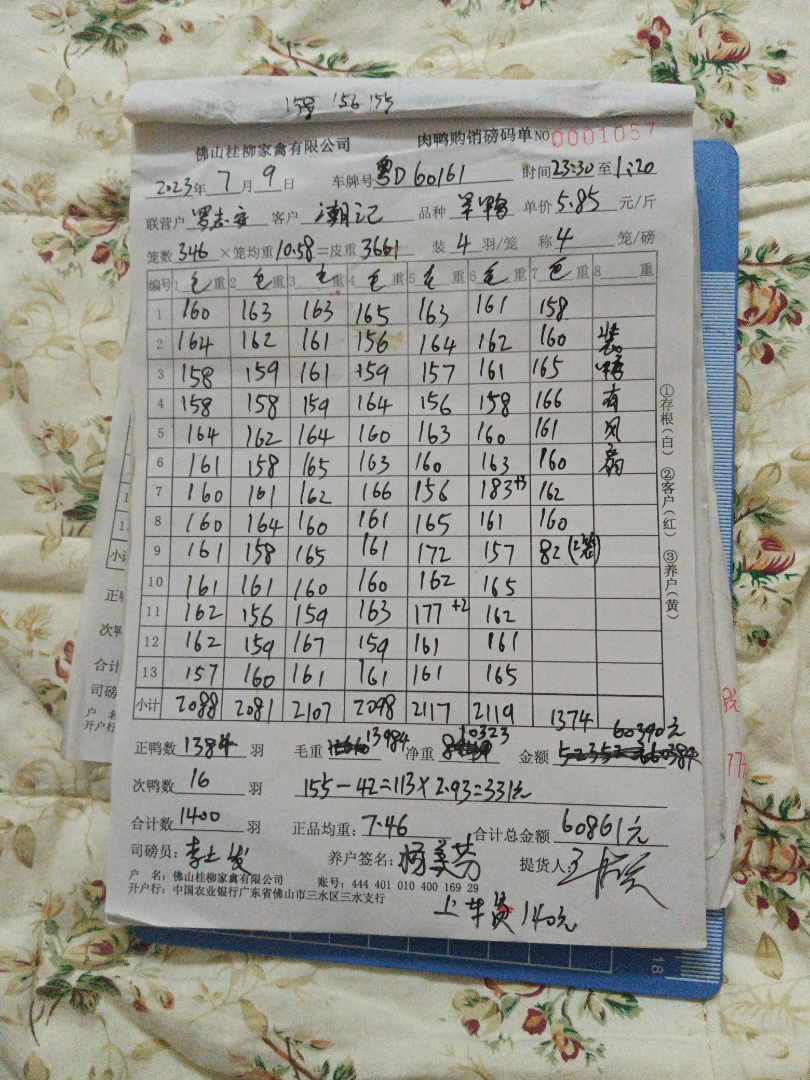 158 156 155
佛山桂柳家禽有限公司 肉鸭购销磅码单 NO 0001057
2023年 7月 9日 车牌号 粤D60161 时间 23:30 至 1:20
联营户 罗志安 客户 潮记 品种 单价 5.85 元/斤
笼数 346 ×笼均重 10.58 =皮重 3661 装 4 羽/笼 称 4 笼/磅
编号 1 毛重 2 毛重 3 毛重 4 毛重 5 毛重 6 毛重 7 毛重 8 重
1 160 163 163 165 163 161 158
2 164 162 161 156 164 162 160 装
3 158 159 161 159 157 161 165 鸭
4 158 158 159 164 156 158 166 有
5 164 162 164 160 163 160 161 风
6 161 158 165 163 160 163 160 扇
7 160 161 162 166 156 183+3 162
8 160 164 160 161 165 161 160
9 161 158 165 161 172 157 82 (2笼)
10 161 161 160 160 162 165
11 162 156 159 163 177+2 162
12 162 159 167 159 161 161
13 157 160 161 161 161 165
小计 2088 2081 2107 2098 2117 2119 1374
①存根(白) ②客户(红) ③养户(黄)
正鸭数 1384 羽 毛重 13984 净重 10323 金额 60390元
次鸭数 16 羽 155-42=113×2.93=331元
合计数 1400 羽 正品均重: 7.46 合计总金额 60861元
司磅员: 养户签名: 杨美芳 提货人:
户 名: 佛山桂柳家禽有限公司 账号: 444 401 010 400 169 29
开户行: 中国农业银行广东省佛山市三水区三水支行
上车费 140元
18